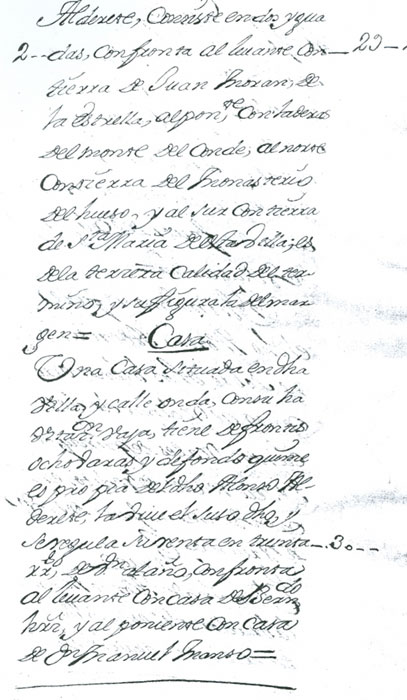 Alderete, Consiste en dos ygua
2-- das, Confronta al levante con — 23 —
tierra de Juan Moran, de
la estrella, al pon.te Con ladera
del monte del Conde, al norte
Con tierra del Monasterio
del hueso, y al sur Con tierra
de S.ta Maria de es
de la terzera Calidad del ter-
mino, y su figura la del mar
gen=
Casa
Una Casa situada en dha
Villa, y calle onda, Con su ha
vitaz.on vaja, tiene de frente
ocho varas y de fondo quinze
es propia del dho Alonso Al
derete, la vive el suso dho, y
se regula su renta en treinta — 30 --
rr.s de v.on al año, Confronta
al levante Con casa de Bern.do
hrr.z, y al poniente Con casa
de D.n Manuel Alonso=